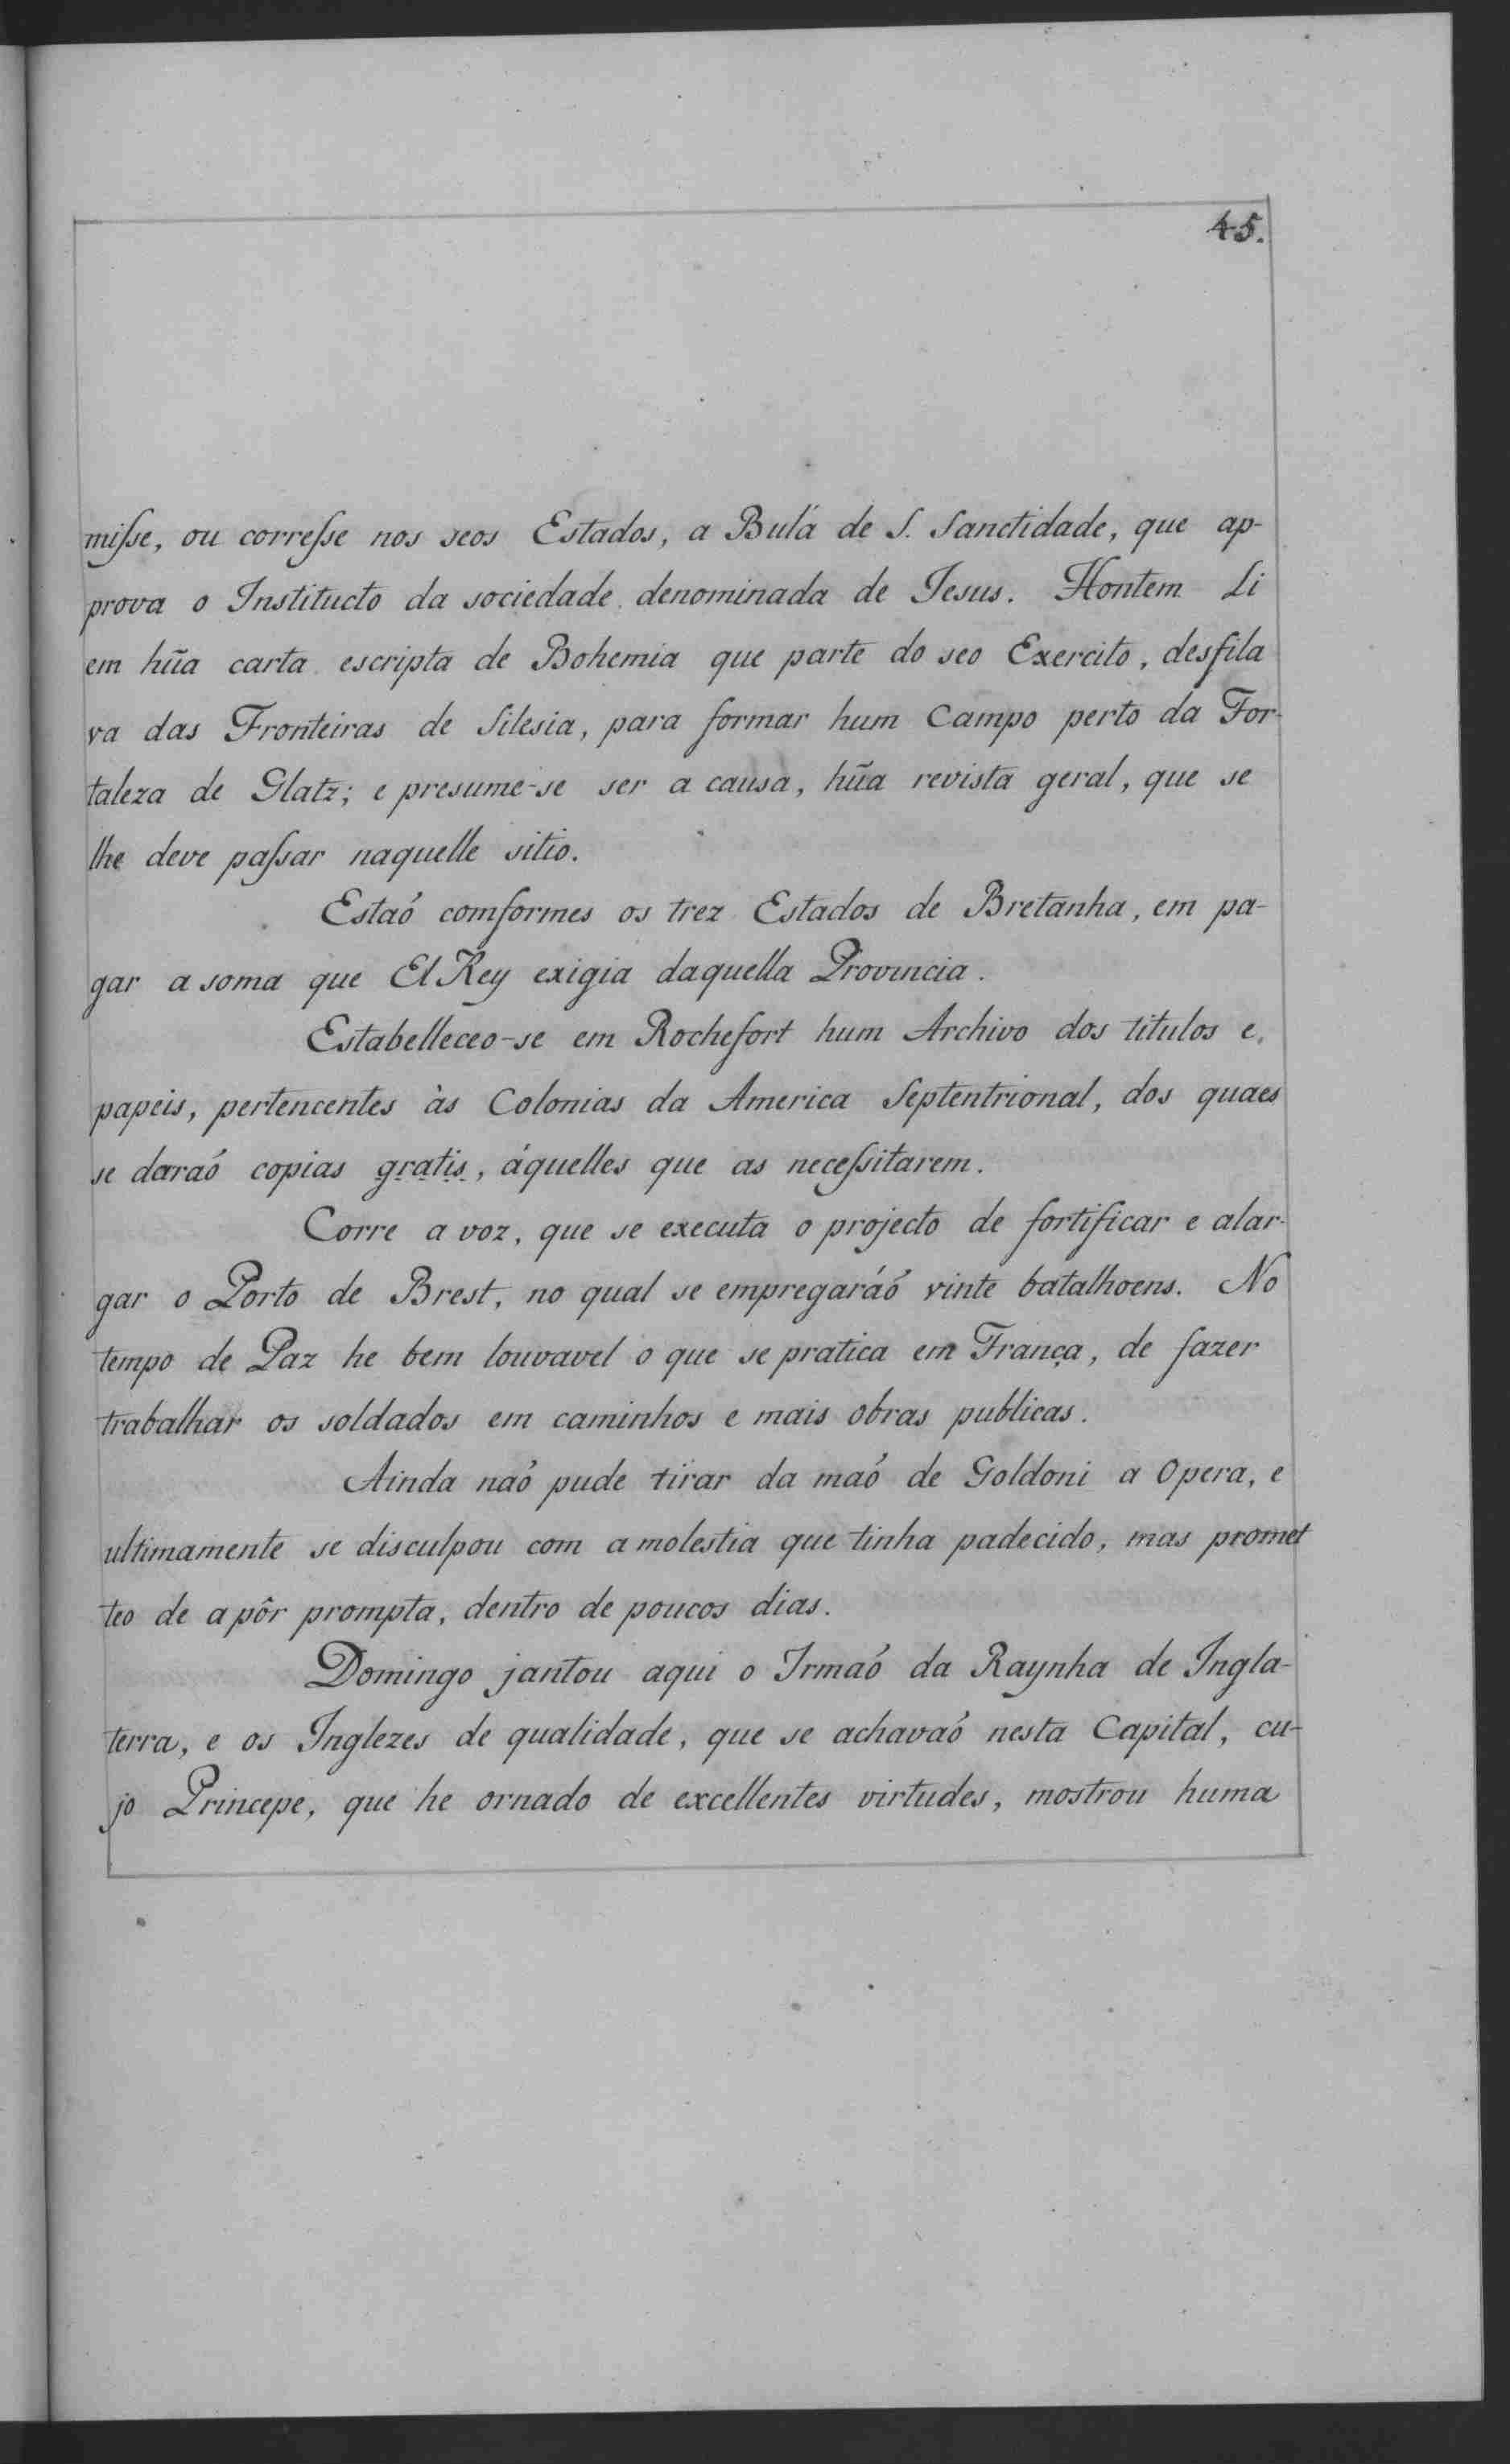 45.
misse, ou corresse nos seos Estados, a Bulá de S. Sanctidade, que ap-
prova o Institucto da sociedade denominada de Jesus. Hontem Li
em hũa carta escripta de Bohemia que parte do seo Exercito, desfila
va das Fronteiras de Silesia, para formar hum Campo perto da For-
taleza de Glatz; e presume-se ser a causa, hũa revista geral, que se
lhe deve passar naquelle sitio.
Estaó comformes os trez Estados de Bretanha, em pa-
gar a soma que El Rey exigia daquella Provincia.
Estabelleceo-se em Rochefort hum Archivo dos titulos e,
papeis, pertencentes às Colonias da America Septentrional, dos quaes
se daraó copias gratis, áquelles que as necessitarem.
Corre a voz, que se executa o projecto de fortificar e alar-
gar o Porto de Brest, no qual se empregaráó vinte batalhoens. No
tempo de Paz he bem louvavel o que se pratica em França, de fazer
trabalhar os soldados em caminhos e mais obras publicas.
Ainda naó pude tirar da maó de Goldoni a Opera, e
ultimamente se disculpou com a molestia que tinha padecido, mas promet
teo de a pôr prompta, dentro de poucos dias.
Domingo jantou aqui o Irmaó da Raynha de Ingla-
terra, e os Inglezes de qualidade, que se achavaó nesta Capital, cu-
jo Princepe, que he ornado de excellentes virtudes, mostrou huma